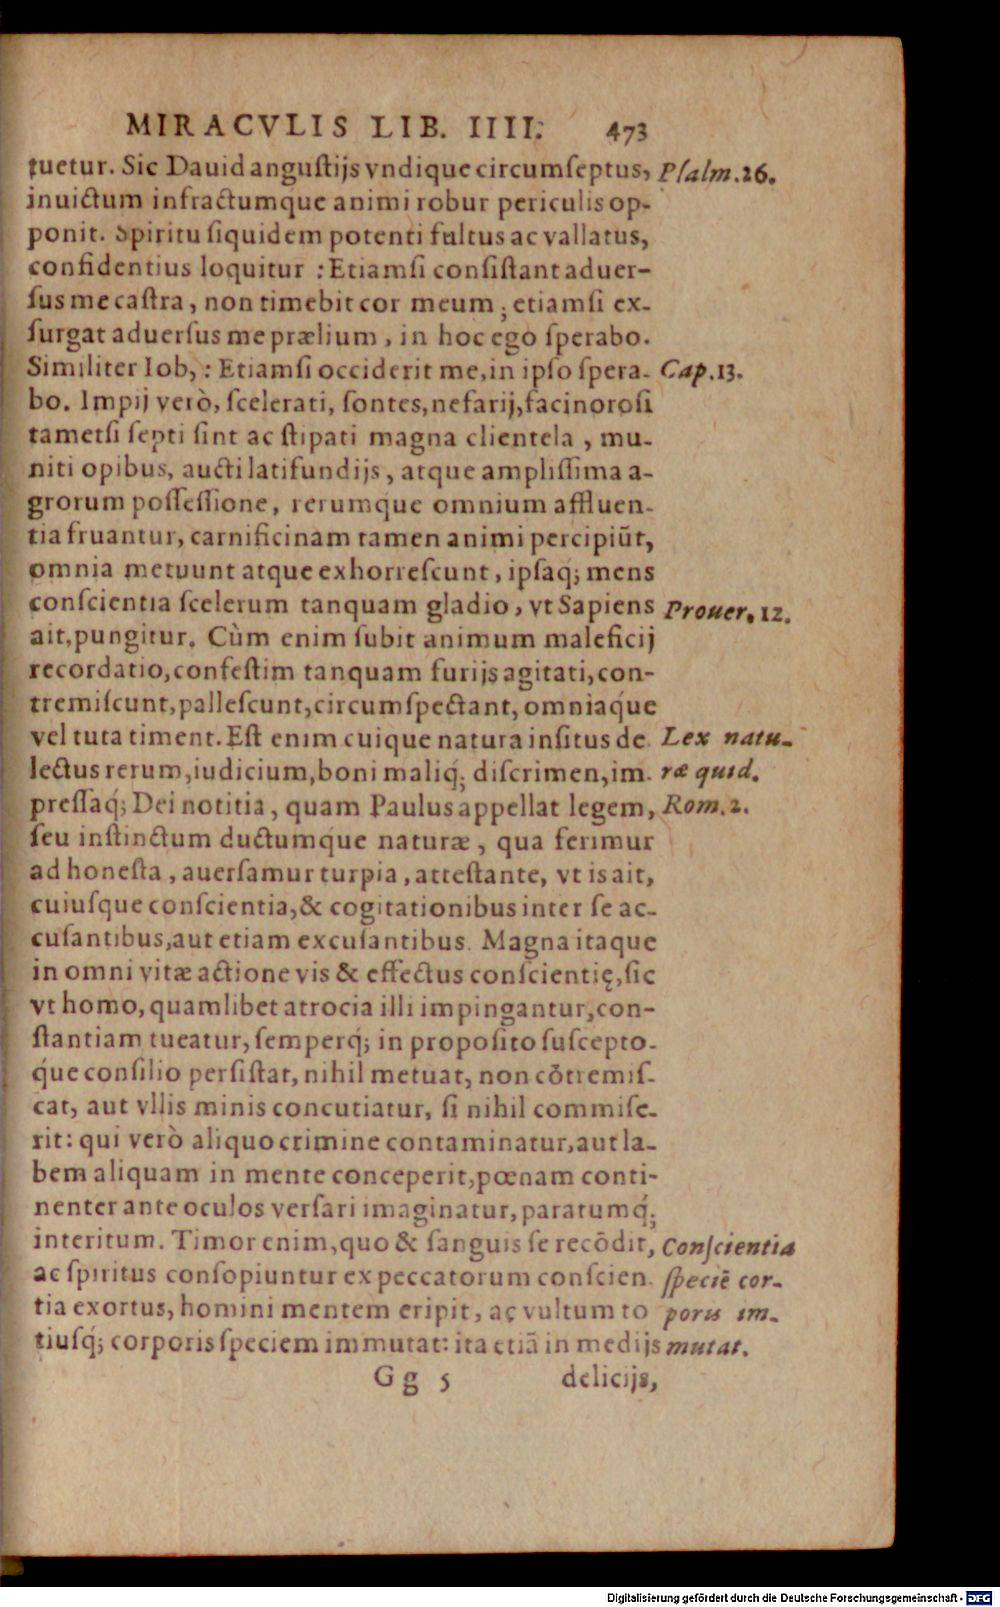 MIRACVLIS LIB. IIII. 473
tuetur. Sic Dauid angustijs vndique circumseptus, Psalm.26.
inuictum infractumque animi robur periculis op-
ponit. Spiritu siquidem potenti fultus ac vallatus,
confidentius loquitur : Etiamsi consistant aduer-
sus me castra, non timebit cor meum; etiamsi ex-
surgat aduersus me prælium, in hoc ego sperabo.
Similiter Iob, : Etiamsi occiderit me, in ipso spera- Cap.13.
bo. Impij verò, scelerati, sontes, nefarij, facinorosi
tametsi septi sint ac stipati magna clientela, mu-
niti opibus, aucti latifundijs, atque amplissima a-
grorum possessione, rerumque omnium affluen-
tia fruantur, carnificinam tamen animi percipiũt,
omnia metuunt atque exhorrescunt, ipsaq; mens
conscientia scelerum tanquam gladio, vt Sapiens Prouer. 12.
ait, pungitur. Cùm enim subit animum maleficij
recordatio, confestim tanquam furijs agitati, con-
tremiscunt, pallescunt, circumspectant, omniaq́ue
vel tuta timent. Est enim cuique natura insitus de Lex natu-
lectus rerum, iudicium, boni maliq́; discrimen, im- ræ quid.
pressaq́; Dei notitia, quam Paulus appellat legem, Rom.2.
seu instinctum ductumque naturæ, qua ferimur
ad honesta, auersamur turpia, attestante, vt is ait,
cuiusque conscientia, & cogitationibus inter se ac-
cusantibus, aut etiam excusantibus. Magna itaque
in omni vitæ actione vis & effectus conscientię, sic
vt homo, quamlibet atrocia illi impingantur, con-
stantiam tueatur, semperq́; in proposito suscepto-
q́ue consilio persistat, nihil metuat, non cõtremis-
cat, aut vllis minis concutiatur, si nihil commise-
rit: qui verò aliquo crimine contaminatur, aut la-
bem aliquam in mente conceperit, pœnam conti-
nenter ante oculos versari imaginatur, paratumq́;
interitum. Timor enim, quo & sanguis se recõdit, Conscientia
ac spiritus consopiuntur ex peccatorum conscien- speciẽ cor-
tia exortus, homini mentem eripit, ac vultum to poris im-
tiusq́; corporis speciem immutat: ita etiã in medijs mutat.
Gg 5 delicijs,
Digitalisierung gefördert durch die Deutsche Forschungsgemeinschaft - DFG